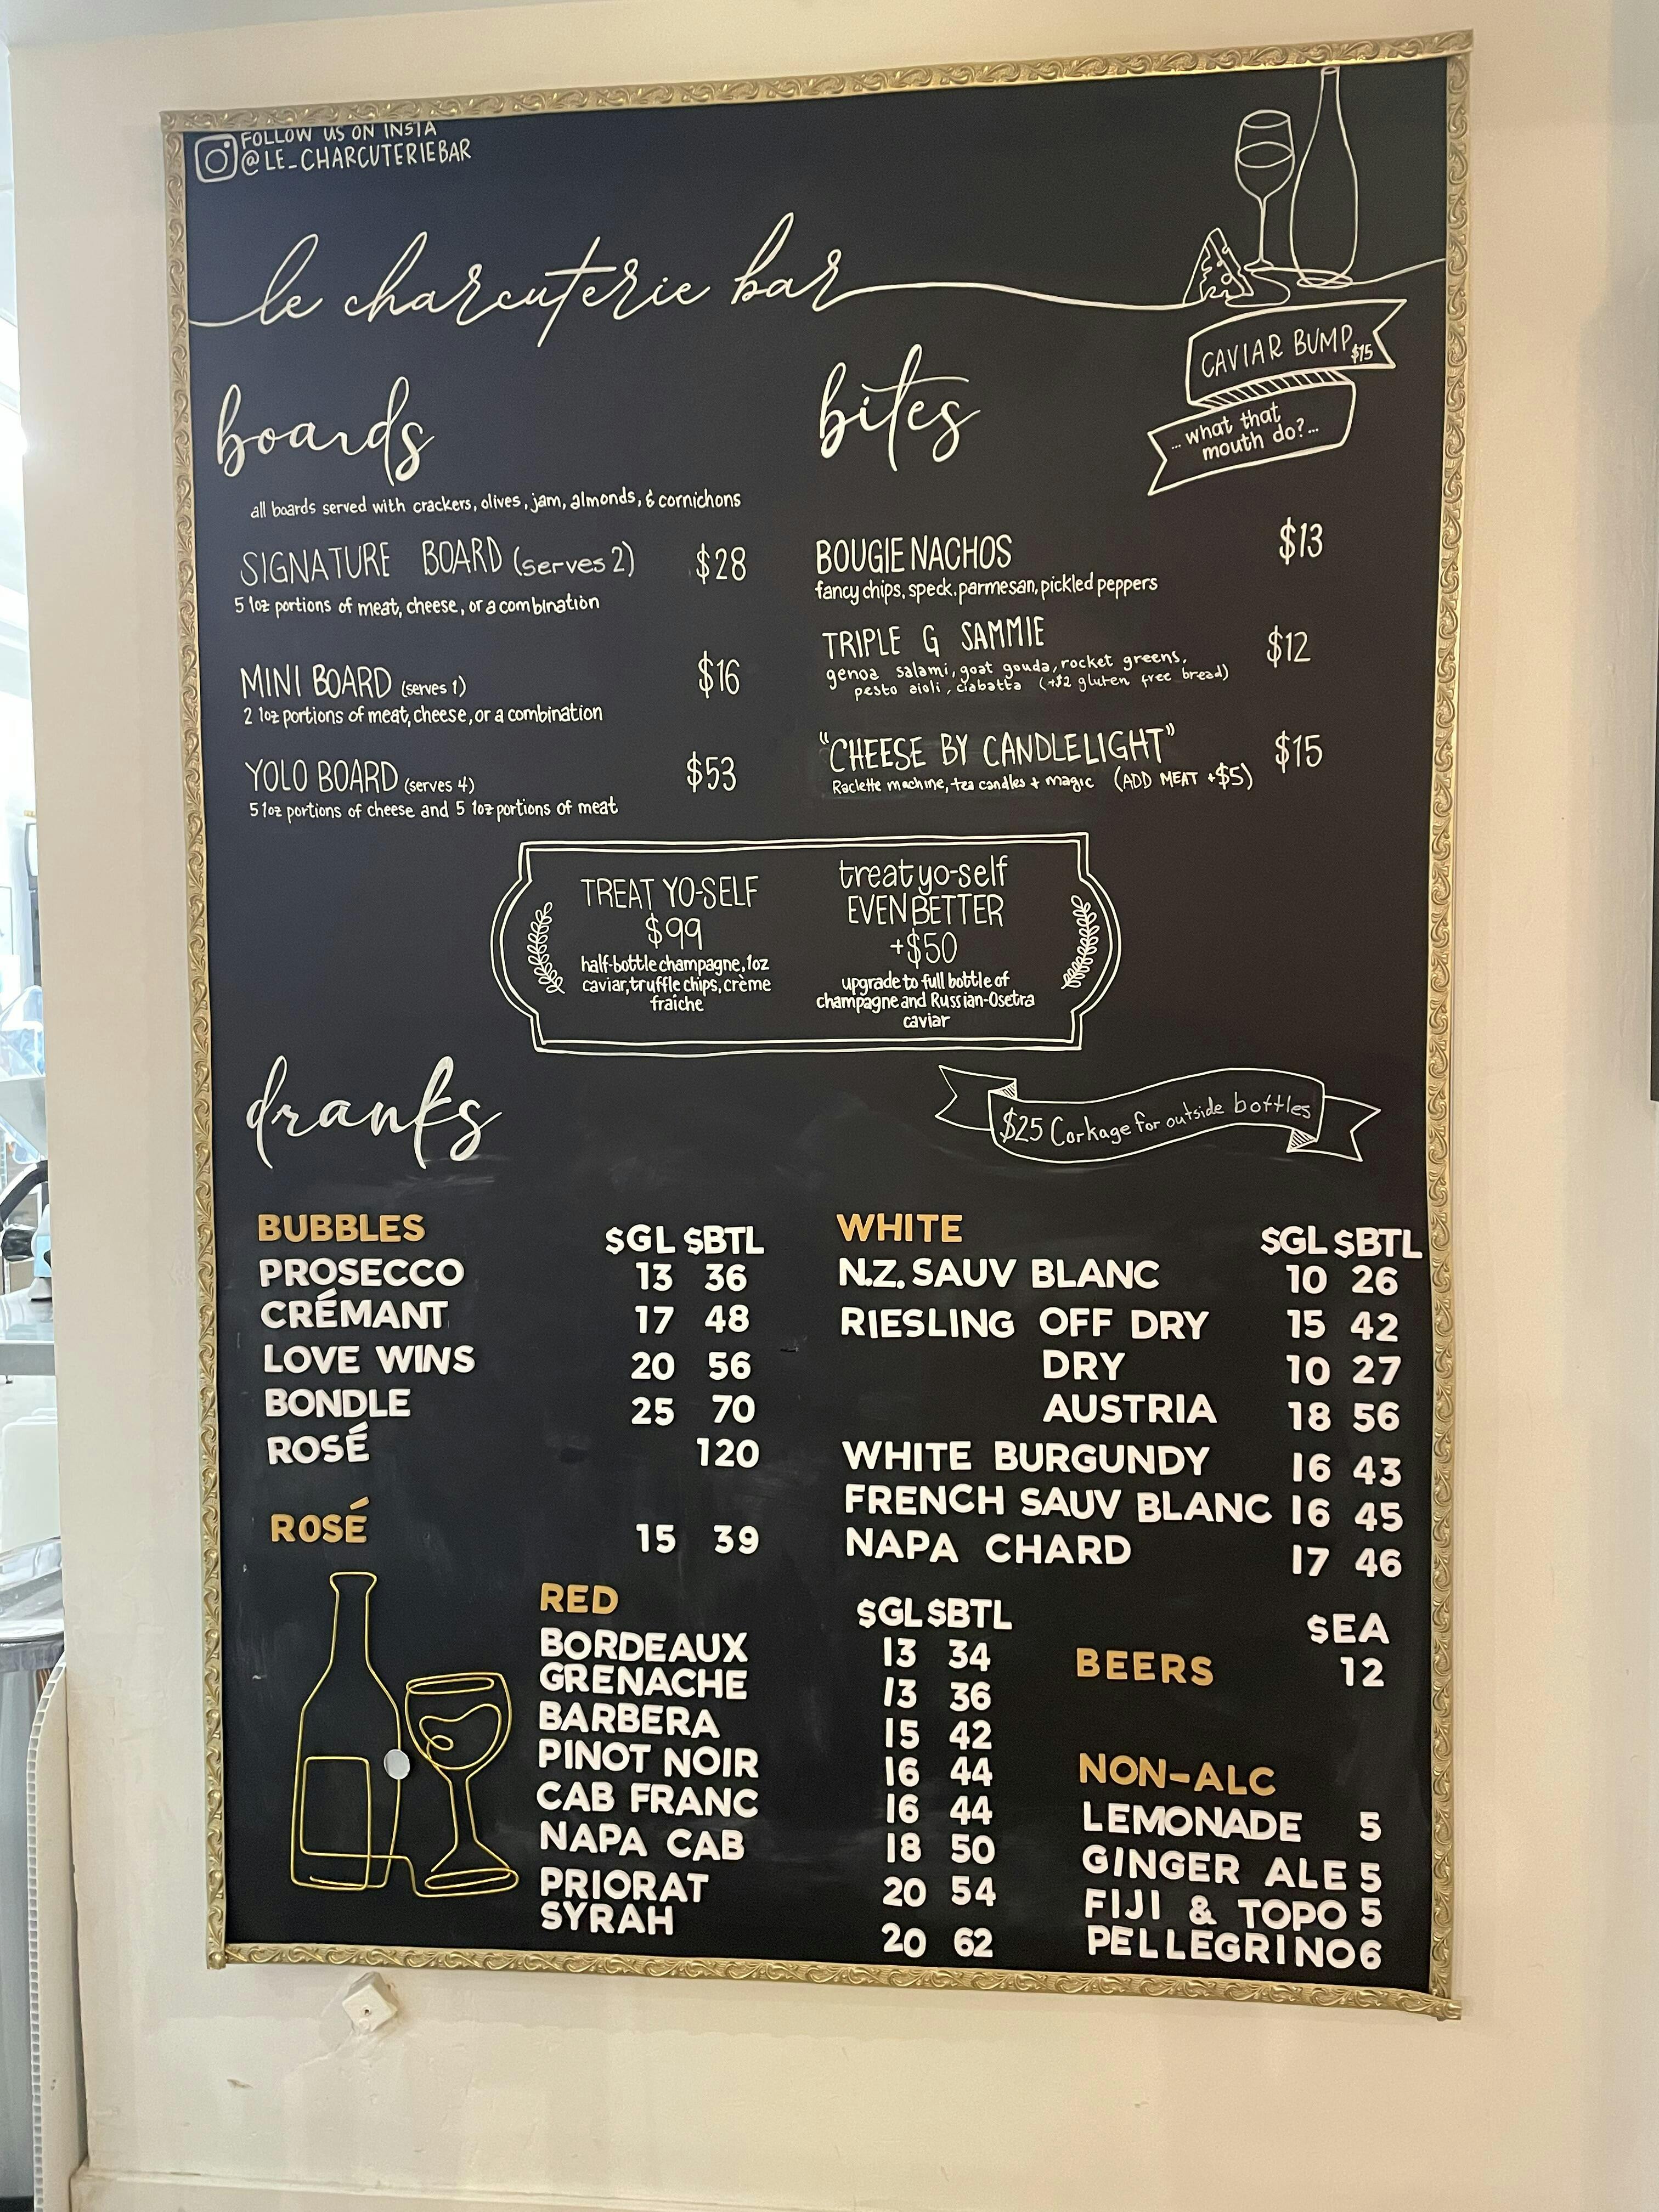 FOLLOW US ON INSTA
@LE_CHARCUTERIEBAR
le charcuterie bar
CAVIAR BUMP $15
...what that
mouth do?...
boards
all boards served with crackers, olives, jam, almonds, & cornichons
SIGNATURE BOARD (serves 2) $28
5 1oz portions of meat, cheese, or a combination
MINI BOARD (serves 1) $16
2 1oz portions of meat, cheese, or a combination
YOLO BOARD (serves 4) $53
5 1oz portions of cheese and 5 1oz portions of meat
bites
BOUGIE NACHOS $13
fancy chips, speck, parmesan, pickled peppers
TRIPLE G SAMMIE $12
genoa salami, goat gouda, rocket greens,
pesto aioli, ciabatta (+$2 gluten free bread)
"CHEESE BY CANDLELIGHT" $15
Raclette machine, tea candles + magic (ADD MEAT +$5)
TREAT YO-SELF
$99
half-bottle champagne, 1oz
caviar, truffle chips, crème
fraiche
treat yo-self
EVEN BETTER
+$50
upgrade to full bottle of
champagne and Russian-Osetra
caviar
dranks
$25 Corkage for outside bottles
BUBBLES $GL $BTL
PROSECCO 13 36
CRÉMANT 17 48
LOVE WINS 20 56
BONDLE 25 70
ROSÉ 120
ROSÉ 15 39
WHITE $GL $BTL
N.Z. SAUV BLANC 10 26
RIESLING OFF DRY 15 42
DRY 10 27
AUSTRIA 18 56
WHITE BURGUNDY 16 43
FRENCH SAUV BLANC 16 45
NAPA CHARD 17 46
RED $GL $BTL
BORDEAUX 13 34
GRENACHE 13 36
BARBERA 15 42
PINOT NOIR 16 44
CAB FRANC 16 44
NAPA CAB 18 50
PRIORAT 20 54
SYRAH 20 62
$EA
BEERS 12
NON-ALC
LEMONADE 5
GINGER ALE 5
FIJI & TOPO 5
PELLEGRINO 6